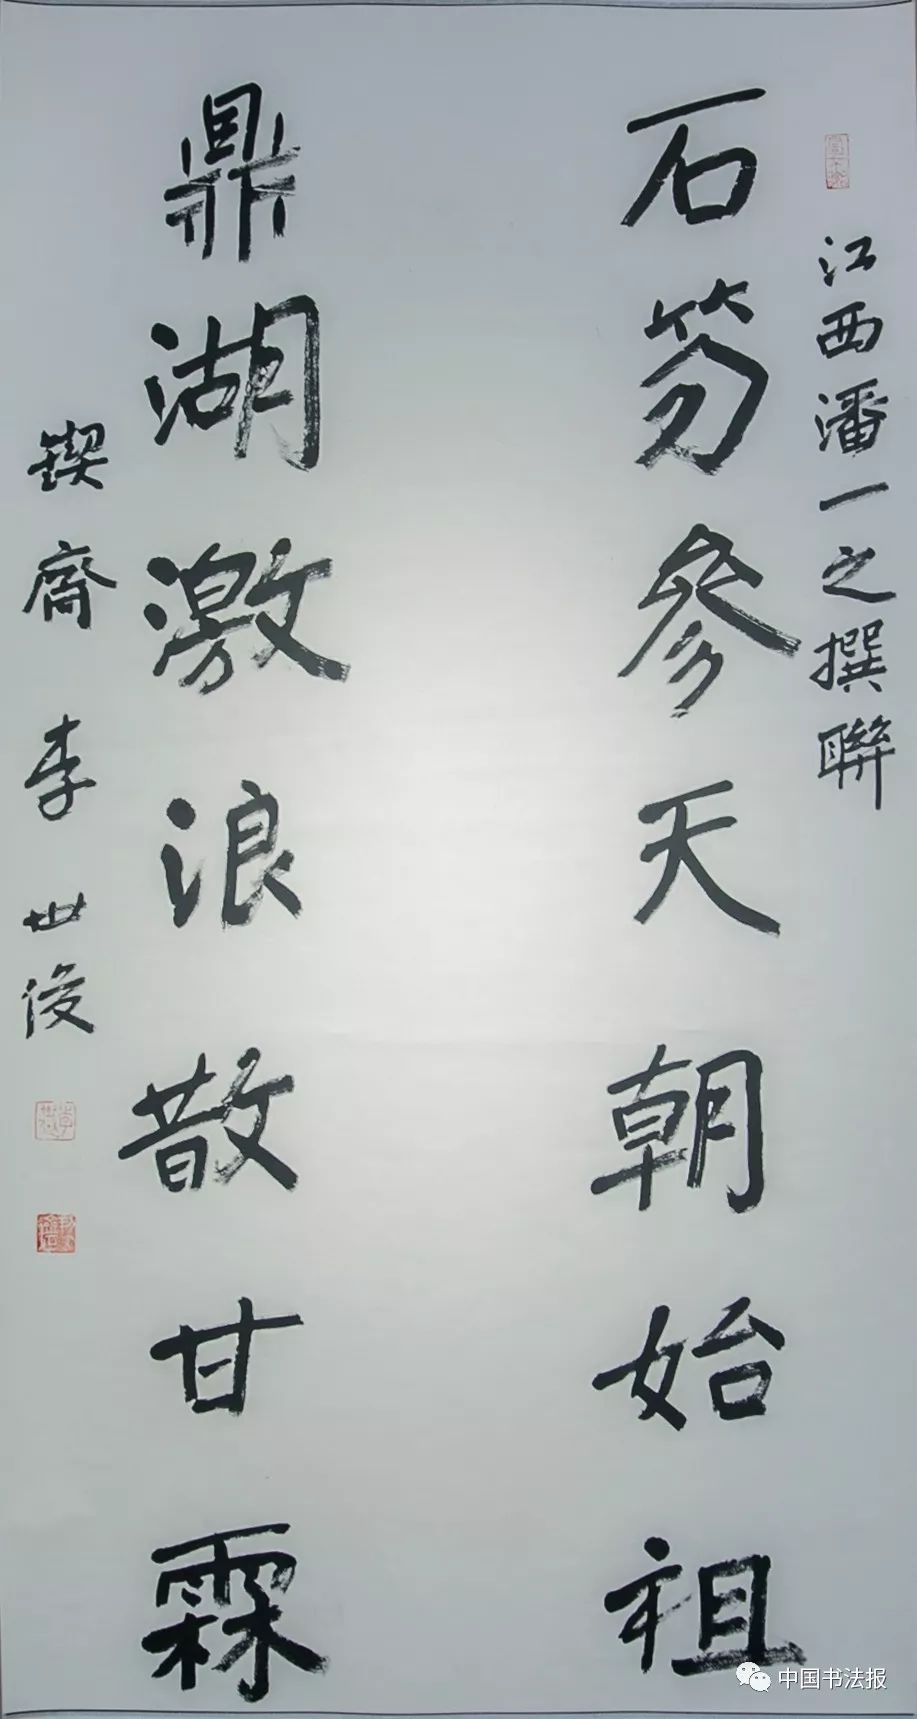 江西潘一之撰聯
石笏參天朝始祖
鼎湖激浪散甘霖
鍥齋李世俊
中国书法报